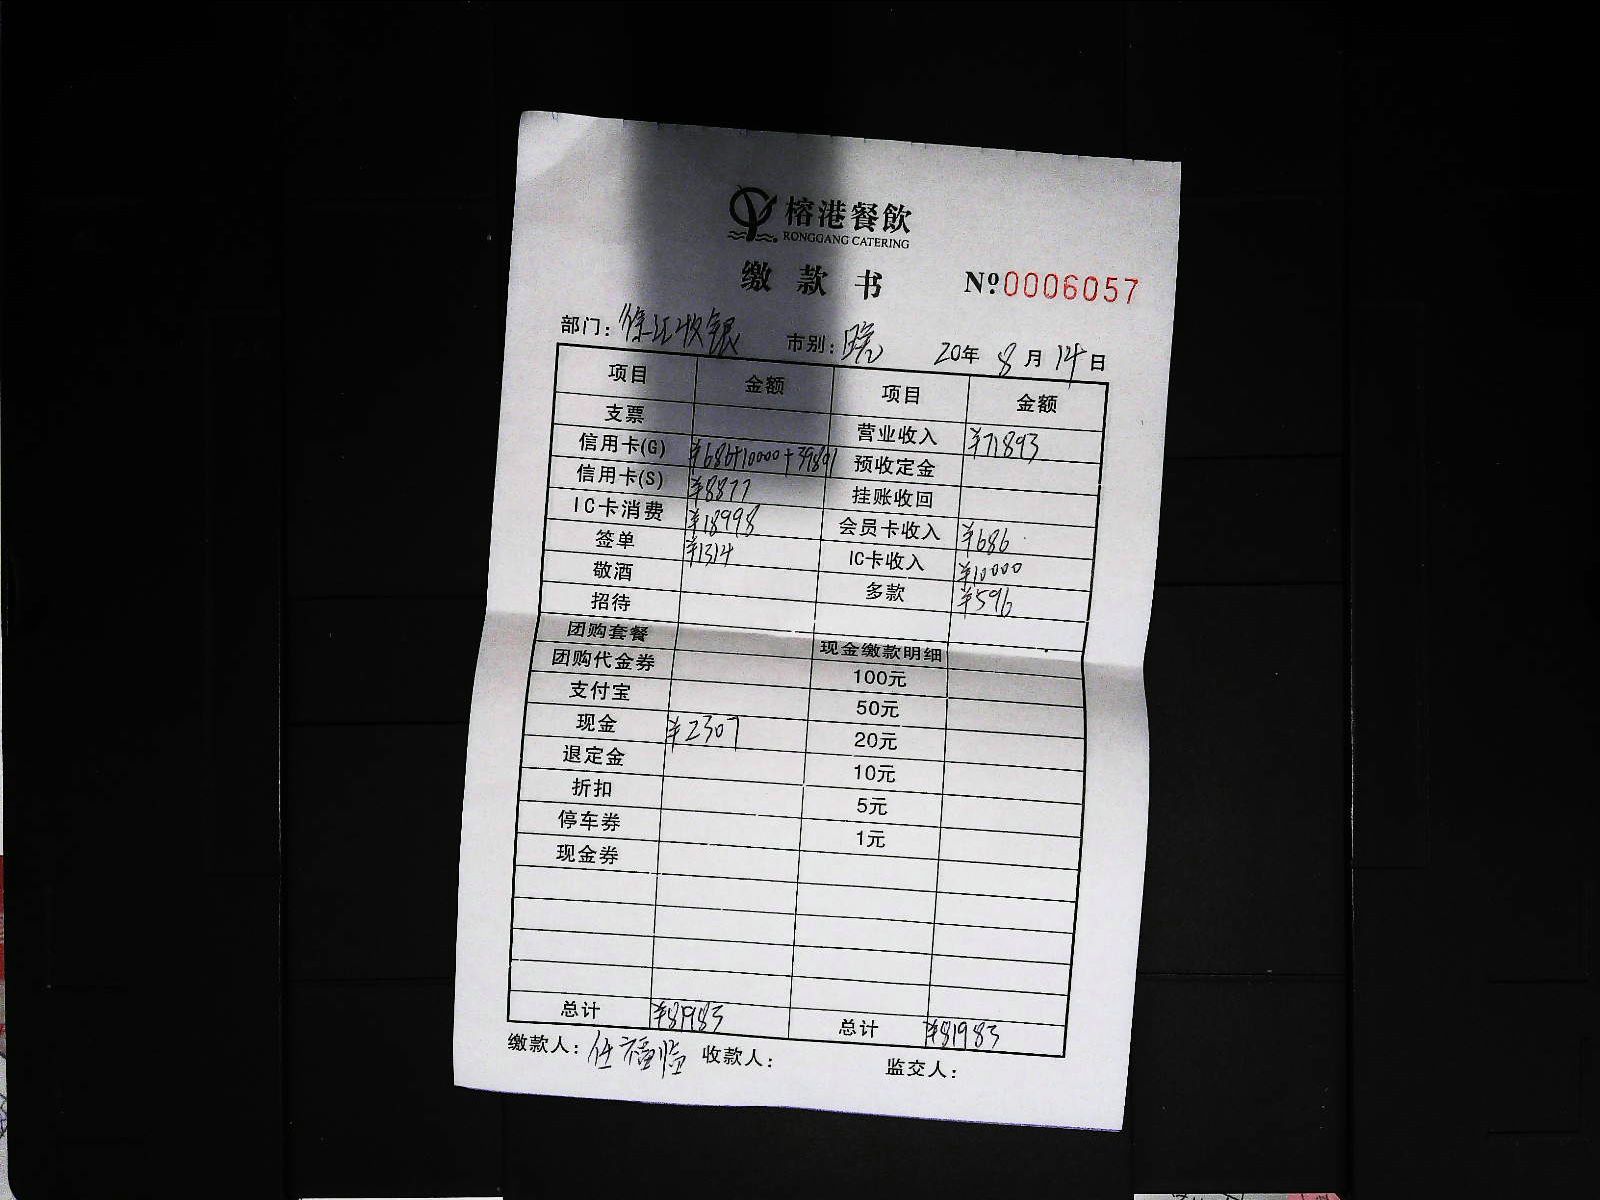 榕港餐飲
RONGGANG CATERING
缴款书 Nº 0006057
部门：徐汇收银 市别：晚 20年 8月 14日
项目 金额 项目 金额
支票 营业收入 ¥71893
信用卡(G) ¥686+10000+39801 预收定金
信用卡(S) ¥8877 挂账收回
IC卡消费 ¥18998 会员卡收入 ¥686
签单 ¥1314 IC卡收入 ¥10000
敬酒 多款 ¥596
招待
团购套餐 现金缴款明细
团购代金券 100元
支付宝 50元
现金 ¥2307 20元
退定金 10元
折扣 5元
停车券 1元
现金券
总计 ¥81983 总计 ¥81983
缴款人：任福临 收款人： 监交人：